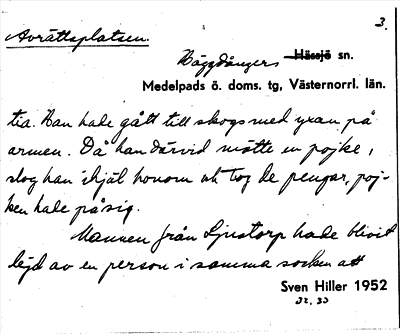 3.
Avrättsplatsen.
Häggdångers Hässjö sn.
Medelpads ö. doms. tg, Västernorrl. län.
tia. Han hade gått till skogs med yxan på
armen. Då han därvid mötte en pojke,
slog han ihjäl honom och tog de pengar, poj-
ken hade på sig.
Mannen från Ljustorp hade blivit
lejd av en person i samma socken att
Sven Hiller 1952
32, 33